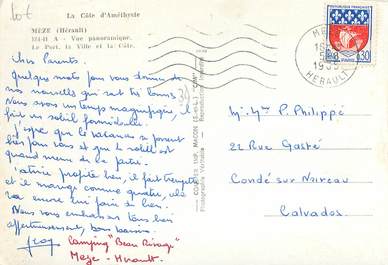 La Côte d'Améthyste
MEZE (Hérault)
184-41 A - Vue panoramique.
Le Port, la Ville et la Côte.
Chers Parents.
Quelques mots pour vous donner de
nos nouvelles qui sont très bonnes.
Nous avons un temps magnifique, il
fait un soleil formidable.
J'espère que les vacances se passent
bien pour vous et que le soleil est
quand même de la partie.
Patrice profite bien, il fait trempette
et il mange comme quatre, cela
va encore lui faire du bien.
Nous vous embrassons tous bien
affectueusement, bons baisers.
Camping "Beau Rivage"
Mèze - Hérault.
COMBIER IMP. MACON (S.-et-L.) "CIM"
Photographie Véritable
REPUBLIQUE FRANÇAISE
0,30
PARIS
MEZE
HERAULT
M. Mme P. Philippé
22 Rue Gasté
Condé sur Noireau
Calvados.